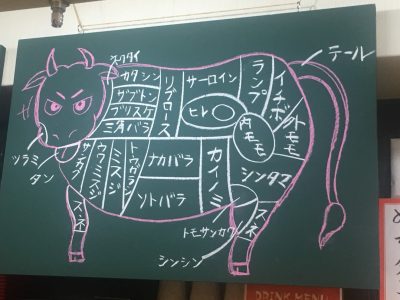 ネクタイ
カタシン
ザブトン
ブリスケ
三角バラ
リブロース
サーロイン
ヒレ
ランプ
イチボ
テール
内モモ
外モモ
ツラミ
タン
サンカク
ウワミスジ
ミスジ
トウガラシ
ナカバラ
ソトバラ
カイノミ
シンタマ
スネ
スネ
トモサンカク
シンシン
DRINK MENU